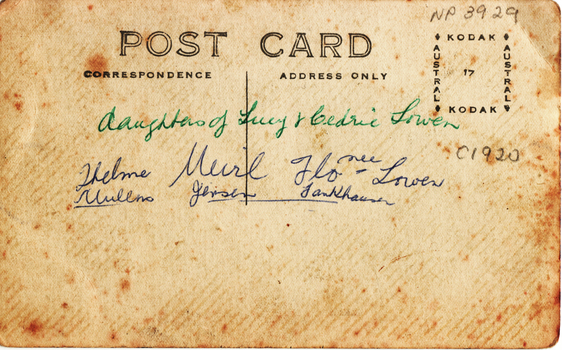 NP 3929
POST CARD
CORRESPONDENCE
ADDRESS ONLY
KODAK
AUSTRAL
17
AUSTRAL
KODAK
daughters of Lucy & Cedric Lowen
C1920
Thelme Meirl Flo - nee Lowen
Mullens Jensen Fankhauser